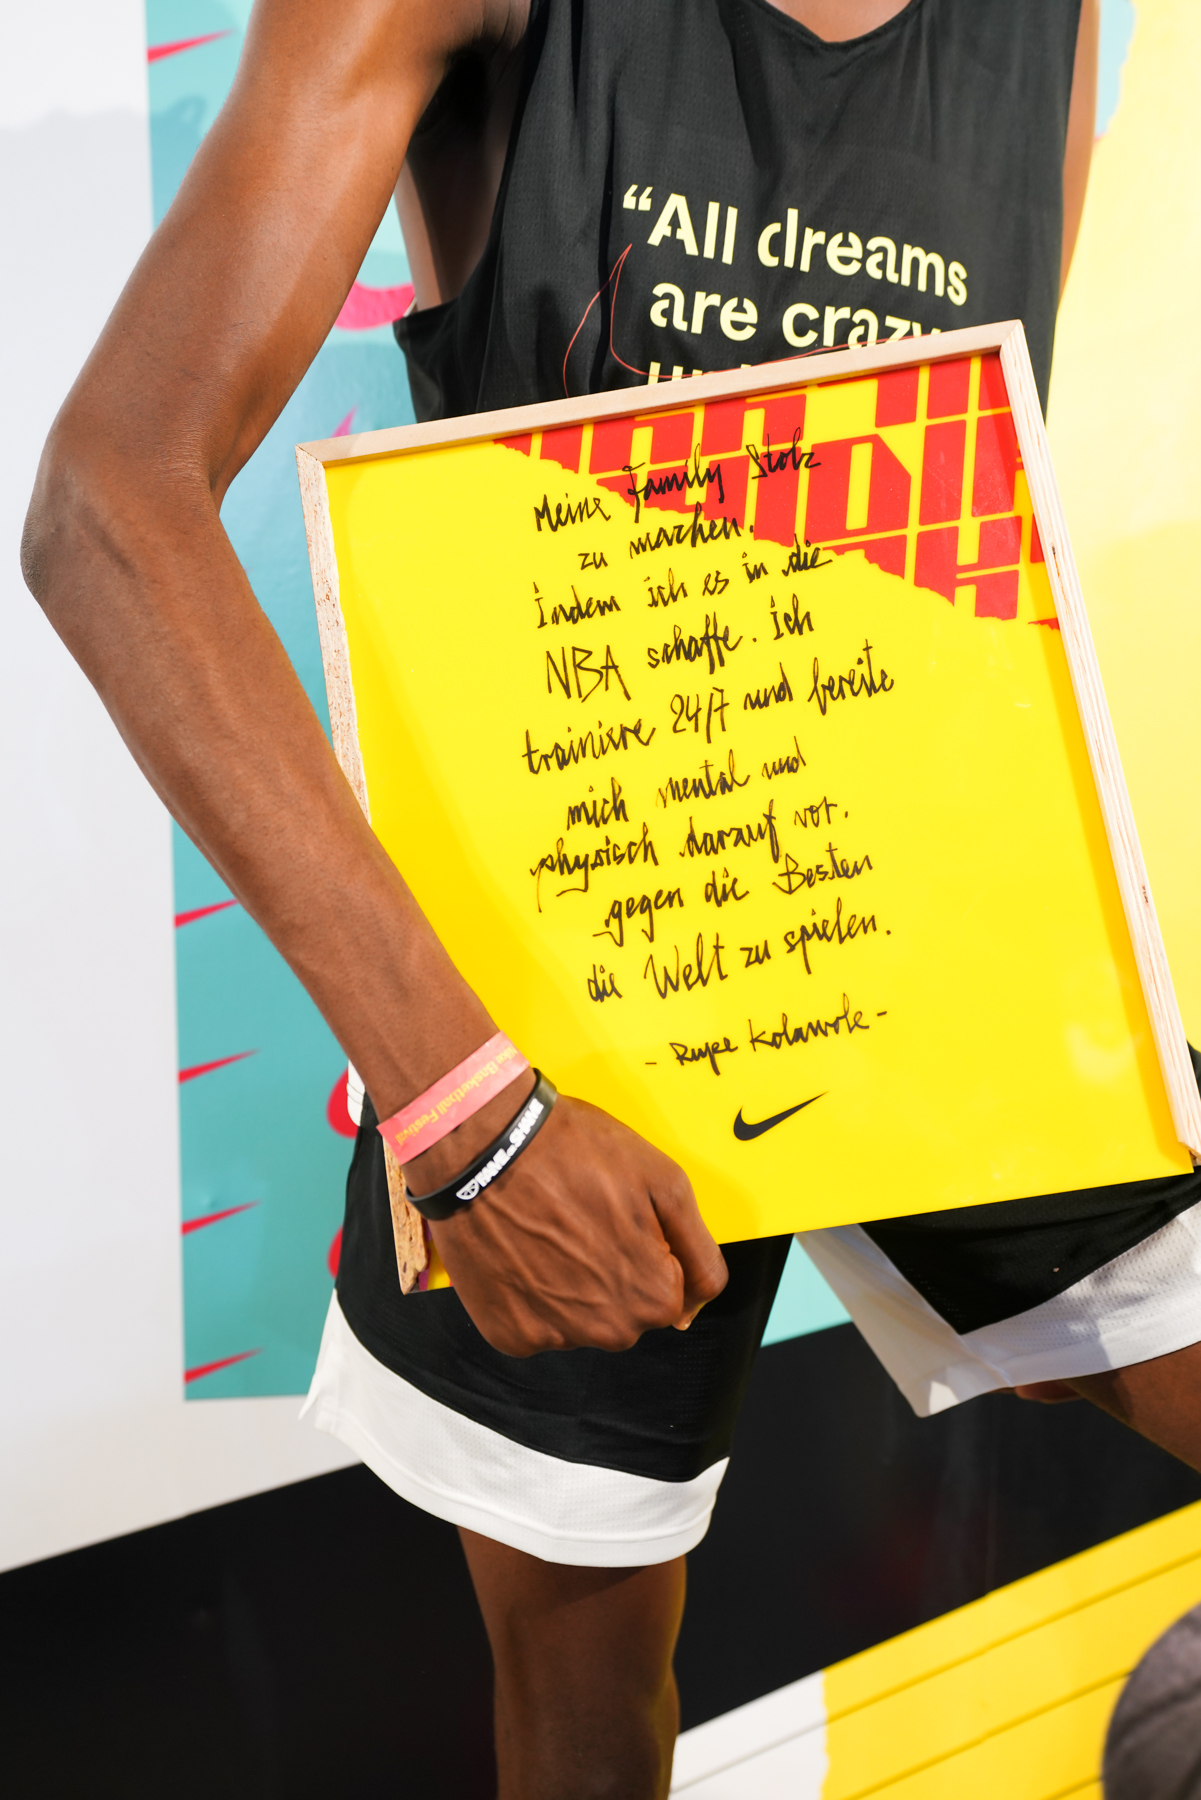 “All dreams
are crazy
Meine Family Stolz
zu machen.
Indem ich es in die
NBA schaffe. Ich
trainiere 24/7 und bereite
mich mental und
physisch darauf vor.
gegen die Besten
die Welt zu spielen.
- Rupe Kolawole -
Basketball Festival